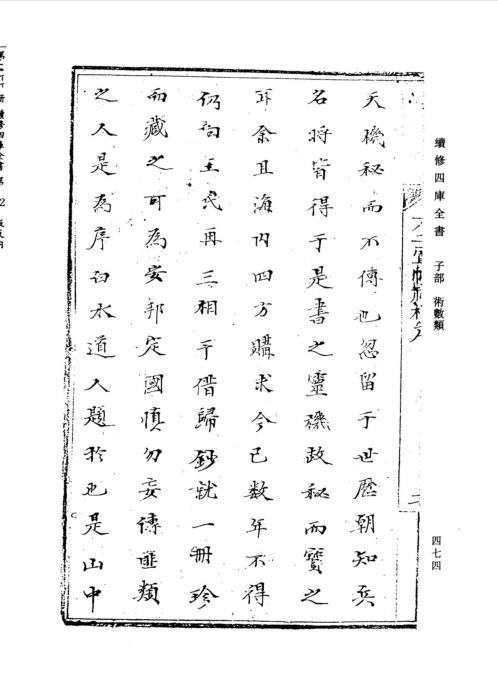 續修四庫全書 子部 術數類
四七四
二
天機秘而不傳也忽留于世歷朝知兵
名將皆得于是書之靈機故秘而寶之
耳余且海内四方購求今已數年不得
仍向王氏再三相予借歸鈔就一冊珍
而藏之可為安邦定國慎勿妄傳匪類
之人是為序白水道人題於也是山中